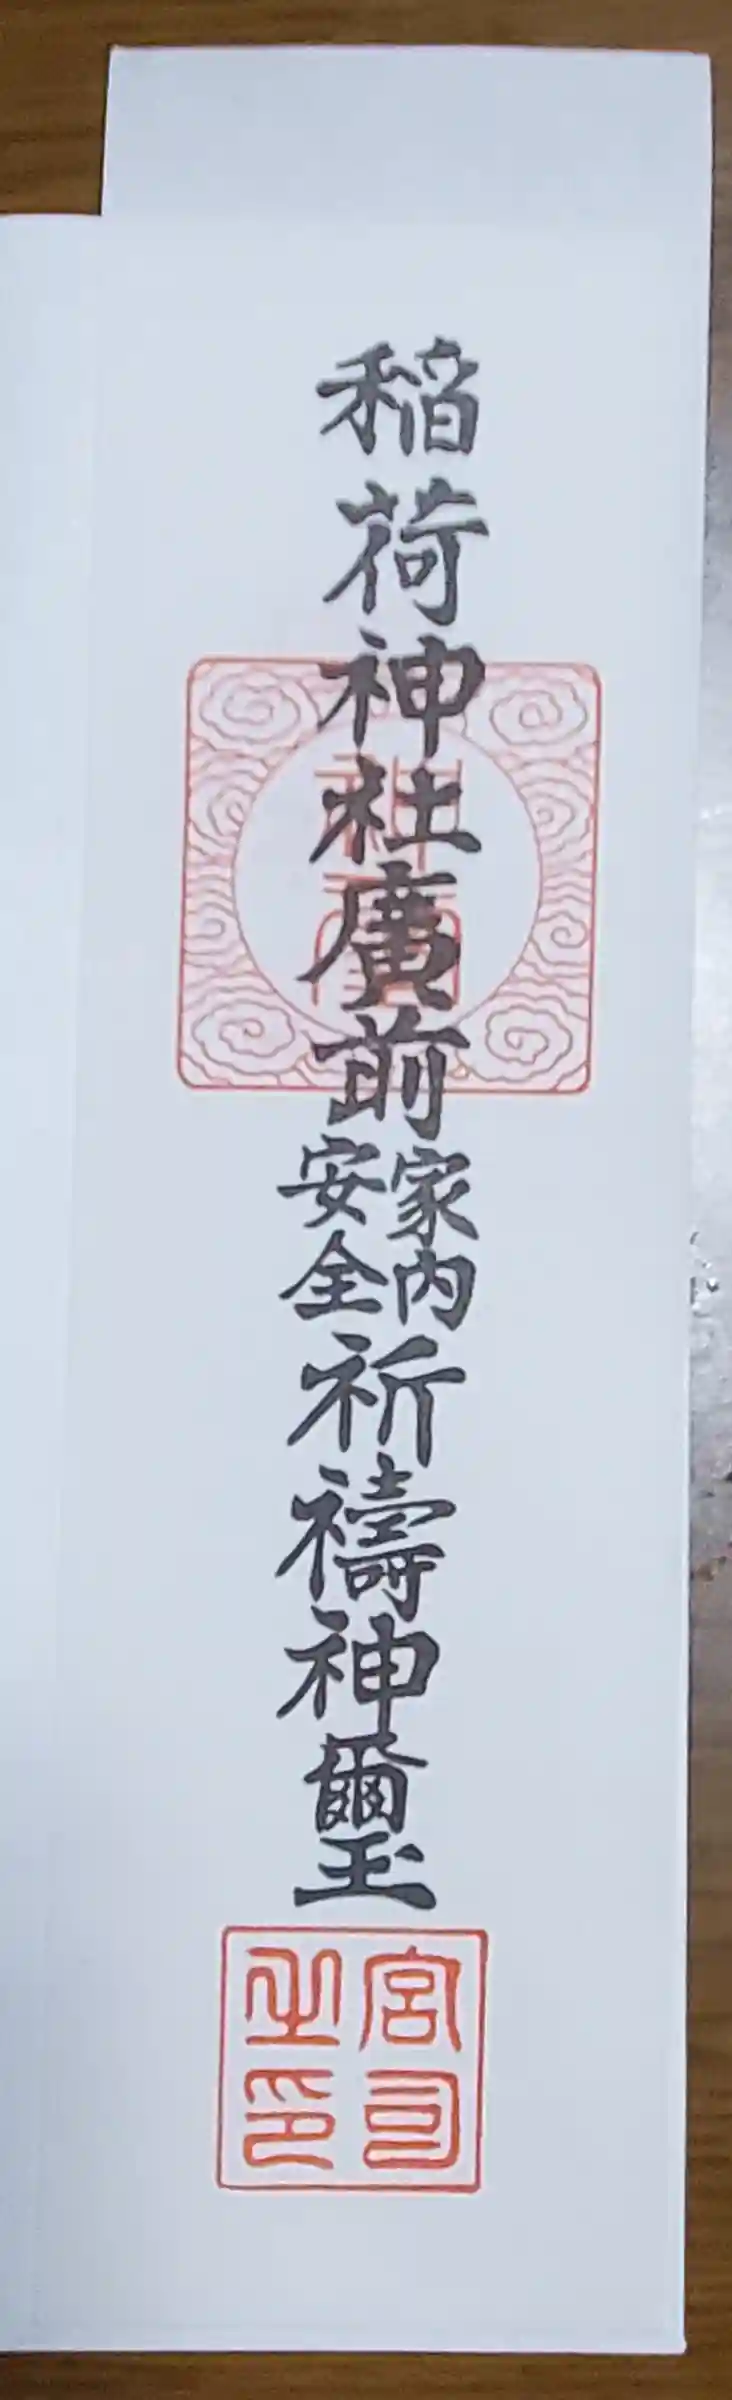 稲荷神社廣前
家内
安全
祈禱神璽
宮司
之印